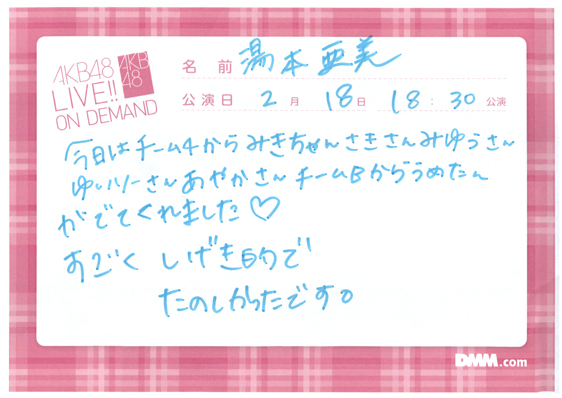 AKB48
LIVE!!
ON DEMAND
AKB
48
名前 湯本亜美
公演日 2月 18日 18:30公演
今日はチーム4からみきちゃんさきさんみゆうさん
ゆいりーさんあやかさんチームBからうめたん
がでてくれました♡
すごく しげき的で
たのしかったです。
DMM.com